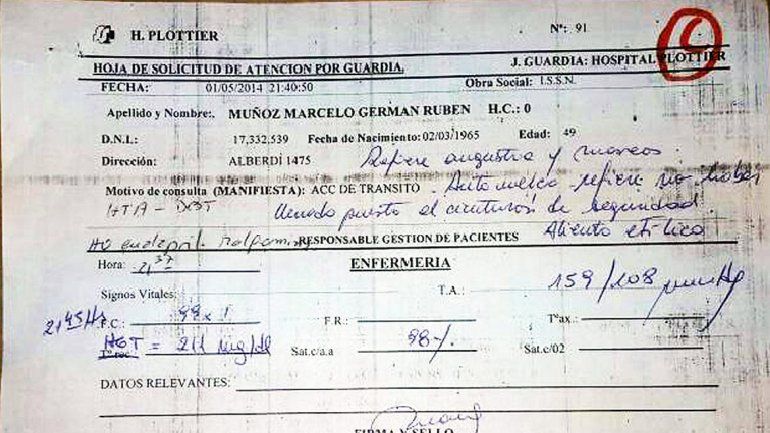 H. PLOTTIER Nº: 91
HOJA DE SOLICITUD DE ATENCION POR GUARDIA. J. GUARDIA: HOSPITAL PLOTTIER
FECHA: 01/05/2014 21:40:50 Obra Social: I.S.S.N.
Apellido y Nombre: MUÑOZ MARCELO GERMAN RUBEN H.C.: 0
D.N.I.: 17,332,539 Fecha de Nacimiento: 02/03/1965 Edad: 49
Dirección: ALBERDI 1475 Refiere angustia y mareos.
Motivo de consulta (MANIFIESTA): ACC DE TRANSITO. Auto refiere no haber
HTA - DBT llevado puesto el cinturón de seguridad
RESPONSABLE GESTION DE PACIENTES Aliento etílico
Hora: 21 37 ENFERMERIA
Signos Vitales: T.A.: 159/108 mmHg
21 45 Hs F.C.: F.R.: Tºax.:
HGT = 211 mg/dl Sat.c/a.a 98% Sat.c/02
DATOS RELEVANTES:
FIRMA Y SELLO